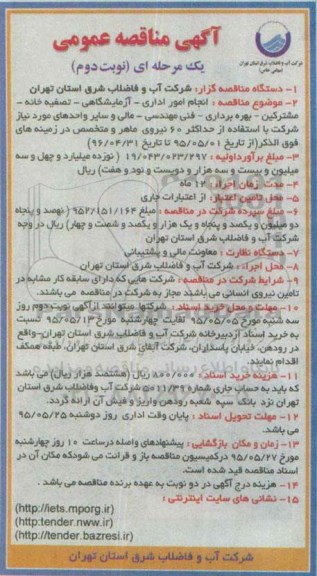 آگهی مناقصه عمومی
یک مرحله ای (نوبت دوم)
شرکت آب و فاضلاب شرق استان تهران
(سهامی خاص)
۱- دستگاه مناقصه گزار: شرکت آب و فاضلاب شرق استان تهران
۲- موضوع مناقصه : انجام امور اداری - آزمایشگاهی - تصفیه خانه -
مشترکین - بهره برداری - فنی مهندسی - مالی و سایر واحدهای مورد نیاز
شرکت با استفاده از حداکثر ۶۰ نیروی ماهر و متخصص در زمینه های
فوق الذکر(از تاریخ ۹۵/۰۵/۰۱ تا تاریخ ۹۶/۰۴/۳۱)
۳- مبلغ برآورداولیه : ۱۹/۰۴۳/۰۲۳/۲۹۷ ( نوزده میلیارد و چهل و سه
میلیون و بیست و سه هزار و دویست و نود و هفت) ریال
۴- مدت زمان اجرا: ۱۲ ماه
۵- محل تامین اعتبار: از اعتبارات جاری
۶- مبلغ سپرده شرکت در مناقصه : مبلغ ۹۵۲/۱۵۱/۱۶۴ ( نهصد و پنجاه
دو میلیون و یکصد و پنجاه و یک هزار و یکصد و شصت و چهار) ریال در وجه
شرکت آب و فاضلاب شرق استان تهران
۷- دستگاه نظارت : معاونت مالی و پشتیبانی
۸- محل اجراء : شرکت آب و فاضلاب شرق استان تهران
۹- شرایط شرکت در مناقصه : شرکت هایی که دارای سابقه کار مشابه در
تامین نیروی انسانی می باشند مجاز به شرکت در مناقصه می باشند.
۱۰- مهلت و محل خرید اسناد : شرکتها میتوانند از آگهی نوبت دوم روز
سه شنبه مورخ ۹۵/۰۵/۰۵ لغایت چهارشنبه مورخ ۹۵/۰۵/۱۳ نسبت
به خرید اسناد ازدبیرخانه شرکت آب و فاضلاب شرق استان تهران-واقع
در رودهن، خیابان پاسداران، شرکت آبفای شرق استان تهران، طبقه همکف
اقدام نمایند.
۱۱- هزینه خرید اسناد : ۸۰۰/۰۰۰ ریال (هشتصد هزار ریال) می باشد
که باید به حساب جاری شماره شرکت آب وفاضلاب شرق استان
تهران نزد بانک سپه شعبه رودهن واریز و فیش آن ارائه گردد.
۱۲- مهلت تحویل اسناد : پایان وقت اداری روز دوشنبه ۹۵/۰۵/۲۵
می باشد.
۱۳- زمان و مکان بازگشایی : پیشنهادهای واصله درساعت ۱۰ روز چهارشنبه
مورخ ۹۵/۰۵/۲۷ درکمیسیون مناقصه باز و قرائت می شودکه مکان آن در
اسناد مناقصه قید شده است.
۱۴- هزینه درج آگهی در دو نوبت به عهده برنده مناقصه می باشد .
۱۵- نشانی های سایت اینترنتی :
(http://iets.mporg.ir)
(http:tender.nww.ir)
(http://tender.bazresi.ir)
شرکت آب و فاضلاب شرق استان تهران